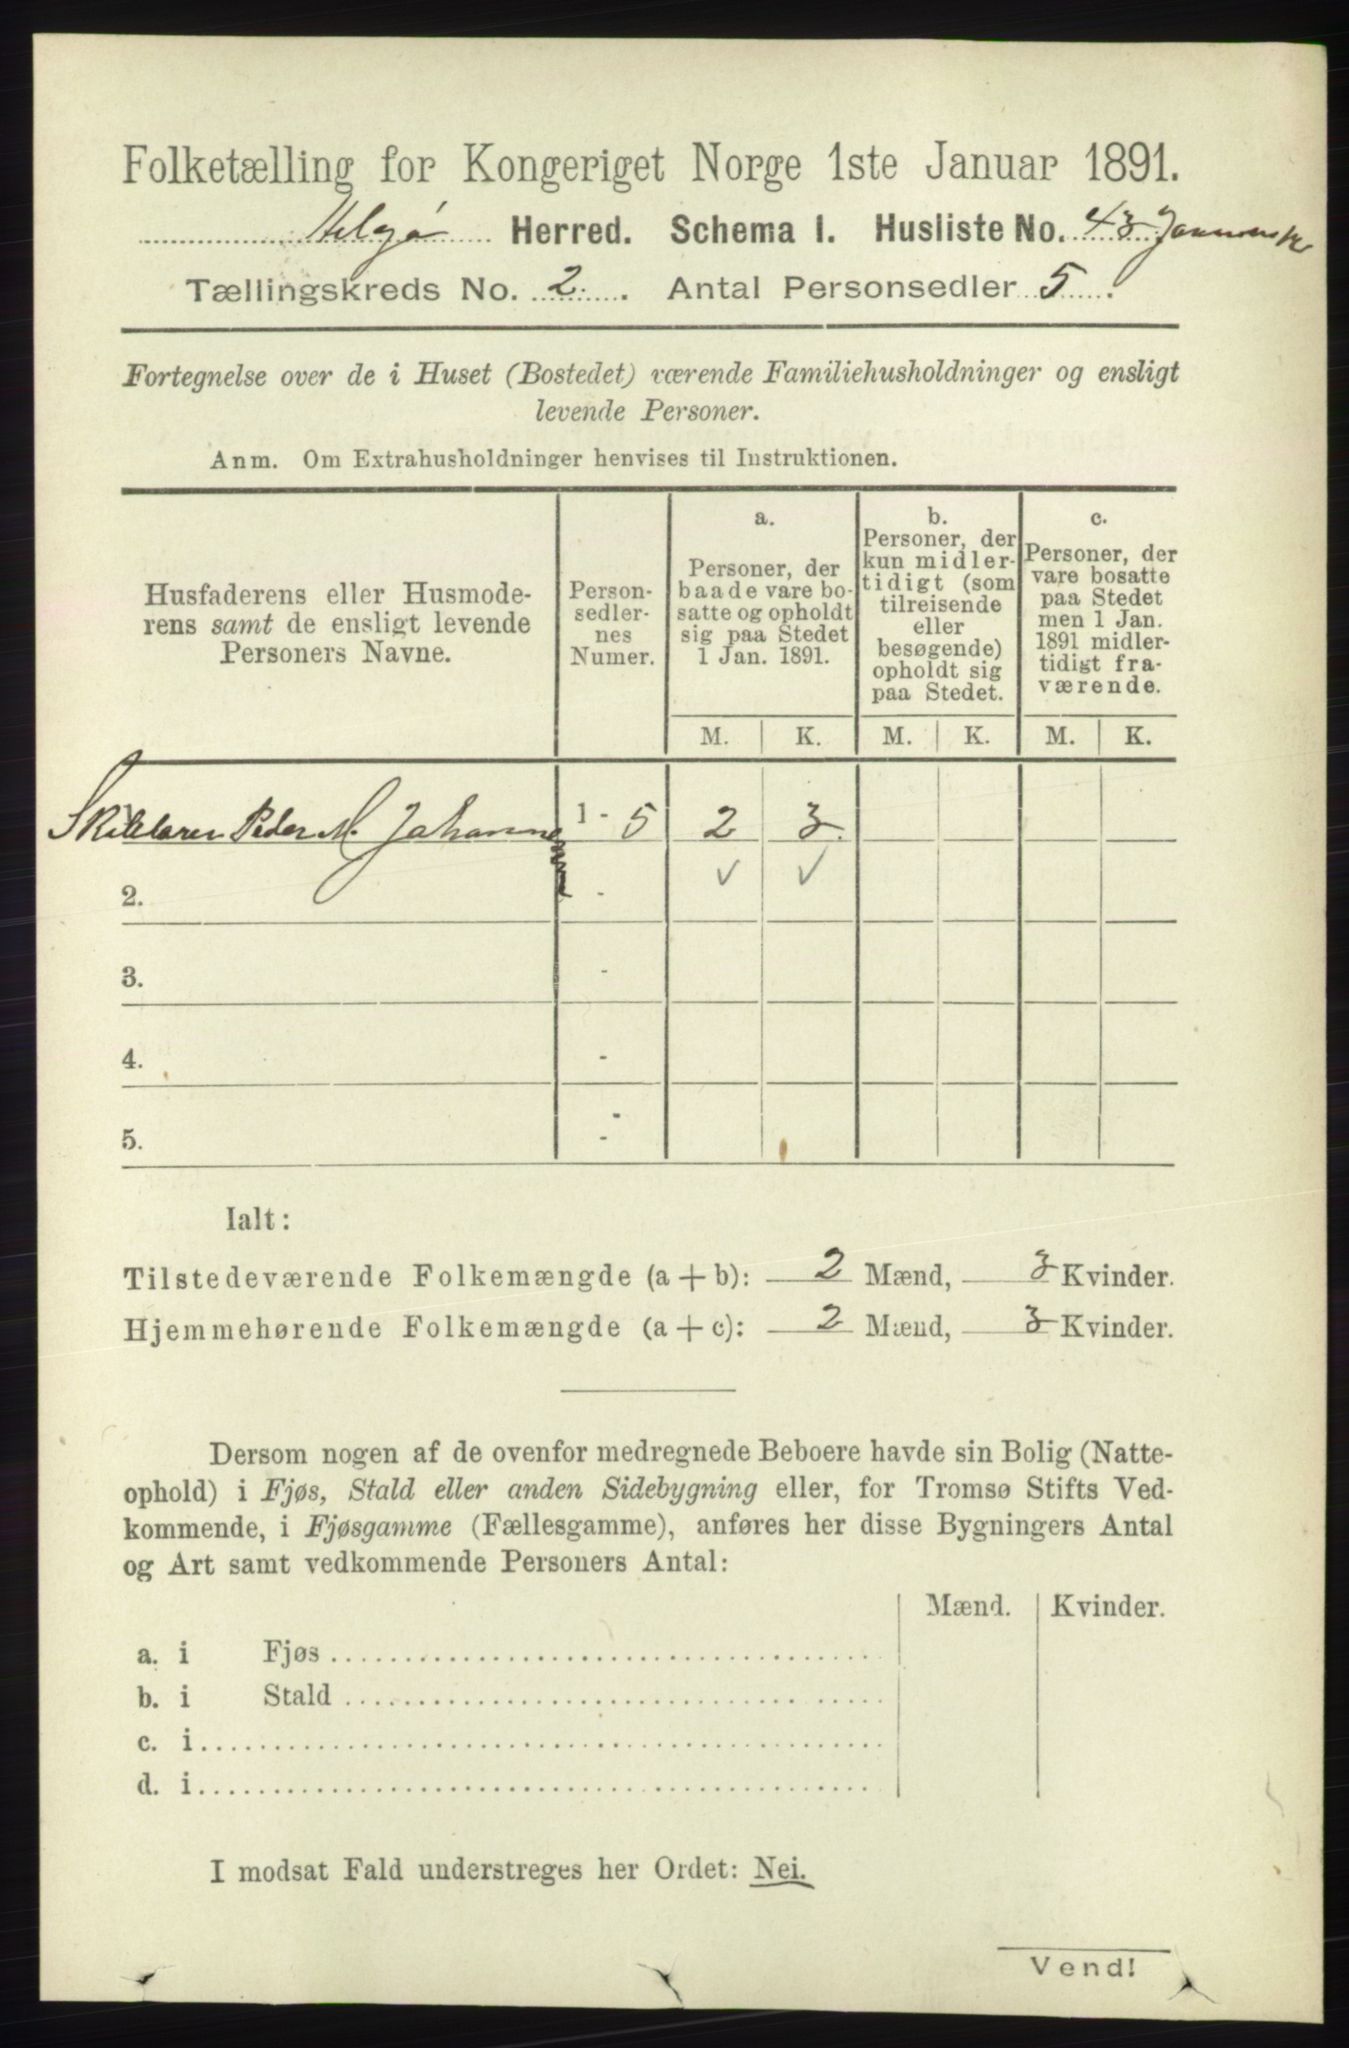 Folketælling for Kongeriget Norge 1ste Januar 1891.
Helgø Herred. Schema I. Husliste No. 43
Tællingskreds No. 2. Antal Personsedler 5.
Fortegnelse over de i Huset (Bostedet) værende Familiehusholdninger og ensligt
levende Personer.
Anm. Om Extrahusholdninger henvises til Instruktionen.
Husfaderens eller Husmode-
rens samt de ensligt levende
Personers Navne.
Person-
sedler-
nes
Numer.
a.
Personer, der
baade vare bo-
satte og opholdt
sig paa Stedet
1 Jan. 1891.
b.
Personer, der
kun midler-
tidigt (som
tilreisende
eller
besøgende)
opholdt sig
paa Stedet.
c.
Personer, der
vare bosatte
paa Stedet
men 1 Jan.
1891 midler-
tidigt fra-
værende.
M. K. M. K. M. K.
Peder M. Johannesen 1 - 5 2 3.
2. - ✓ ✓
3. -
4. -
5. -
Ialt:
Tilstedeværende Folkemængde (a + b): 2 Mænd, 3 Kvinder.
Hjemmehørende Folkemængde (a + c): 2 Mænd, 3 Kvinder.
Dersom nogen af de ovenfor medregnede Beboere havde sin Bolig (Natte-
ophold) i Fjøs, Stald eller anden Sidebygning eller, for Tromsø Stifts Ved-
kommende, i Fjøsgamme (Fællesgamme), anføres her disse Bygningers Antal
og Art samt vedkommende Personers Antal:
Mænd. Kvinder.
a. i Fjøs
b. i Stald
c. i
d. i
I modsat Fald understreges her Ordet: Nei.
Vend!